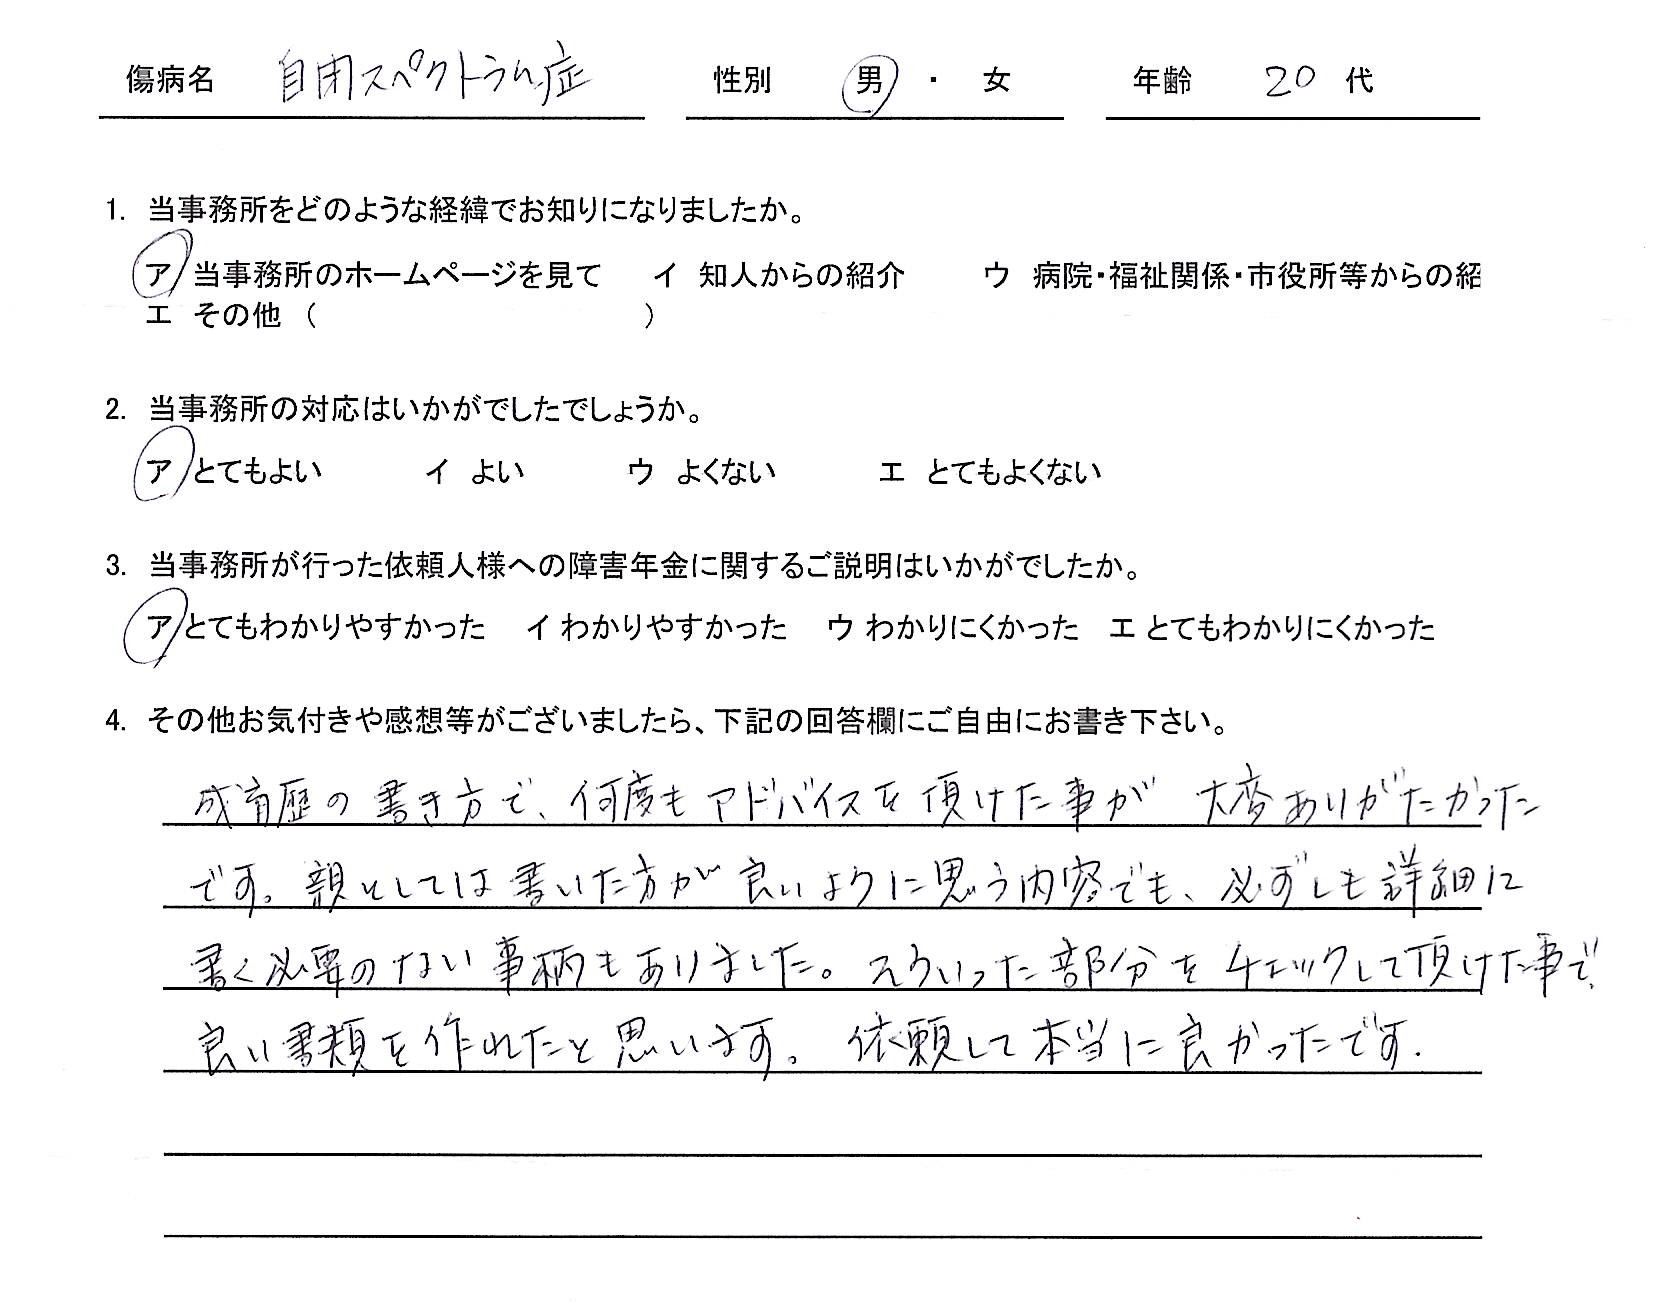 傷病名 自閉スペクトラム症 性別 男 ・ 女 年齢 20 代
1. 当事務所をどのような経緯でお知りになりましたか。
ア 当事務所のホームページを見て イ 知人からの紹介 ウ 病院・福祉関係・市役所等からの紹
エ その他 ( )
2. 当事務所の対応はいかがでしたでしょうか。
ア とてもよい イ よい ウ よくない エ とてもよくない
3. 当事務所が行った依頼人様への障害年金に関するご説明はいかがでしたか。
ア とてもわかりやすかった イ わかりやすかった ウ わかりにくかった エ とてもわかりにくかった
4. その他お気付きや感想等がございましたら、下記の回答欄にご自由にお書き下さい。
成育歴の書き方で、何度もアドバイスを頂けた事が 大変ありがたかった
です。親としては書いた方が良いように思う内容でも、必ずしも詳細に
書く必要のない事柄もありました。そういった部分をチェックして頂けた事で、
良い書類を作れたと思います。依頼して本当に良かったです.